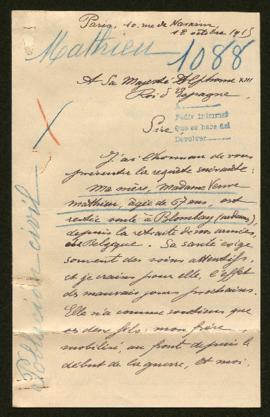 Paris, 10, rue de Navarin,
18 octobre 1915
Mathieu 1088
A Sa Majesté Alphonse XIII
Roi d'Espagne
Pedir informes
que se hace del
Devolver
Sire,
J'ai l'honneur de vous
présenter la requête suivante:
Ma mère, Madame Veuve
Mathieu, âgée de 67 ans, est
restée seule à Blombay (Ardennes),
depuis la retraite de nos armées,
en Belgique. Sa santé exige
souvent des soins attentifs,
et je crains pour elle, l'effet
des mauvais jours prochains.
Elle n'a comme soutiens que
ses deux fils: mon frère,
mobilisé, au front depuis le
début de la guerre, et moi.
Población civil